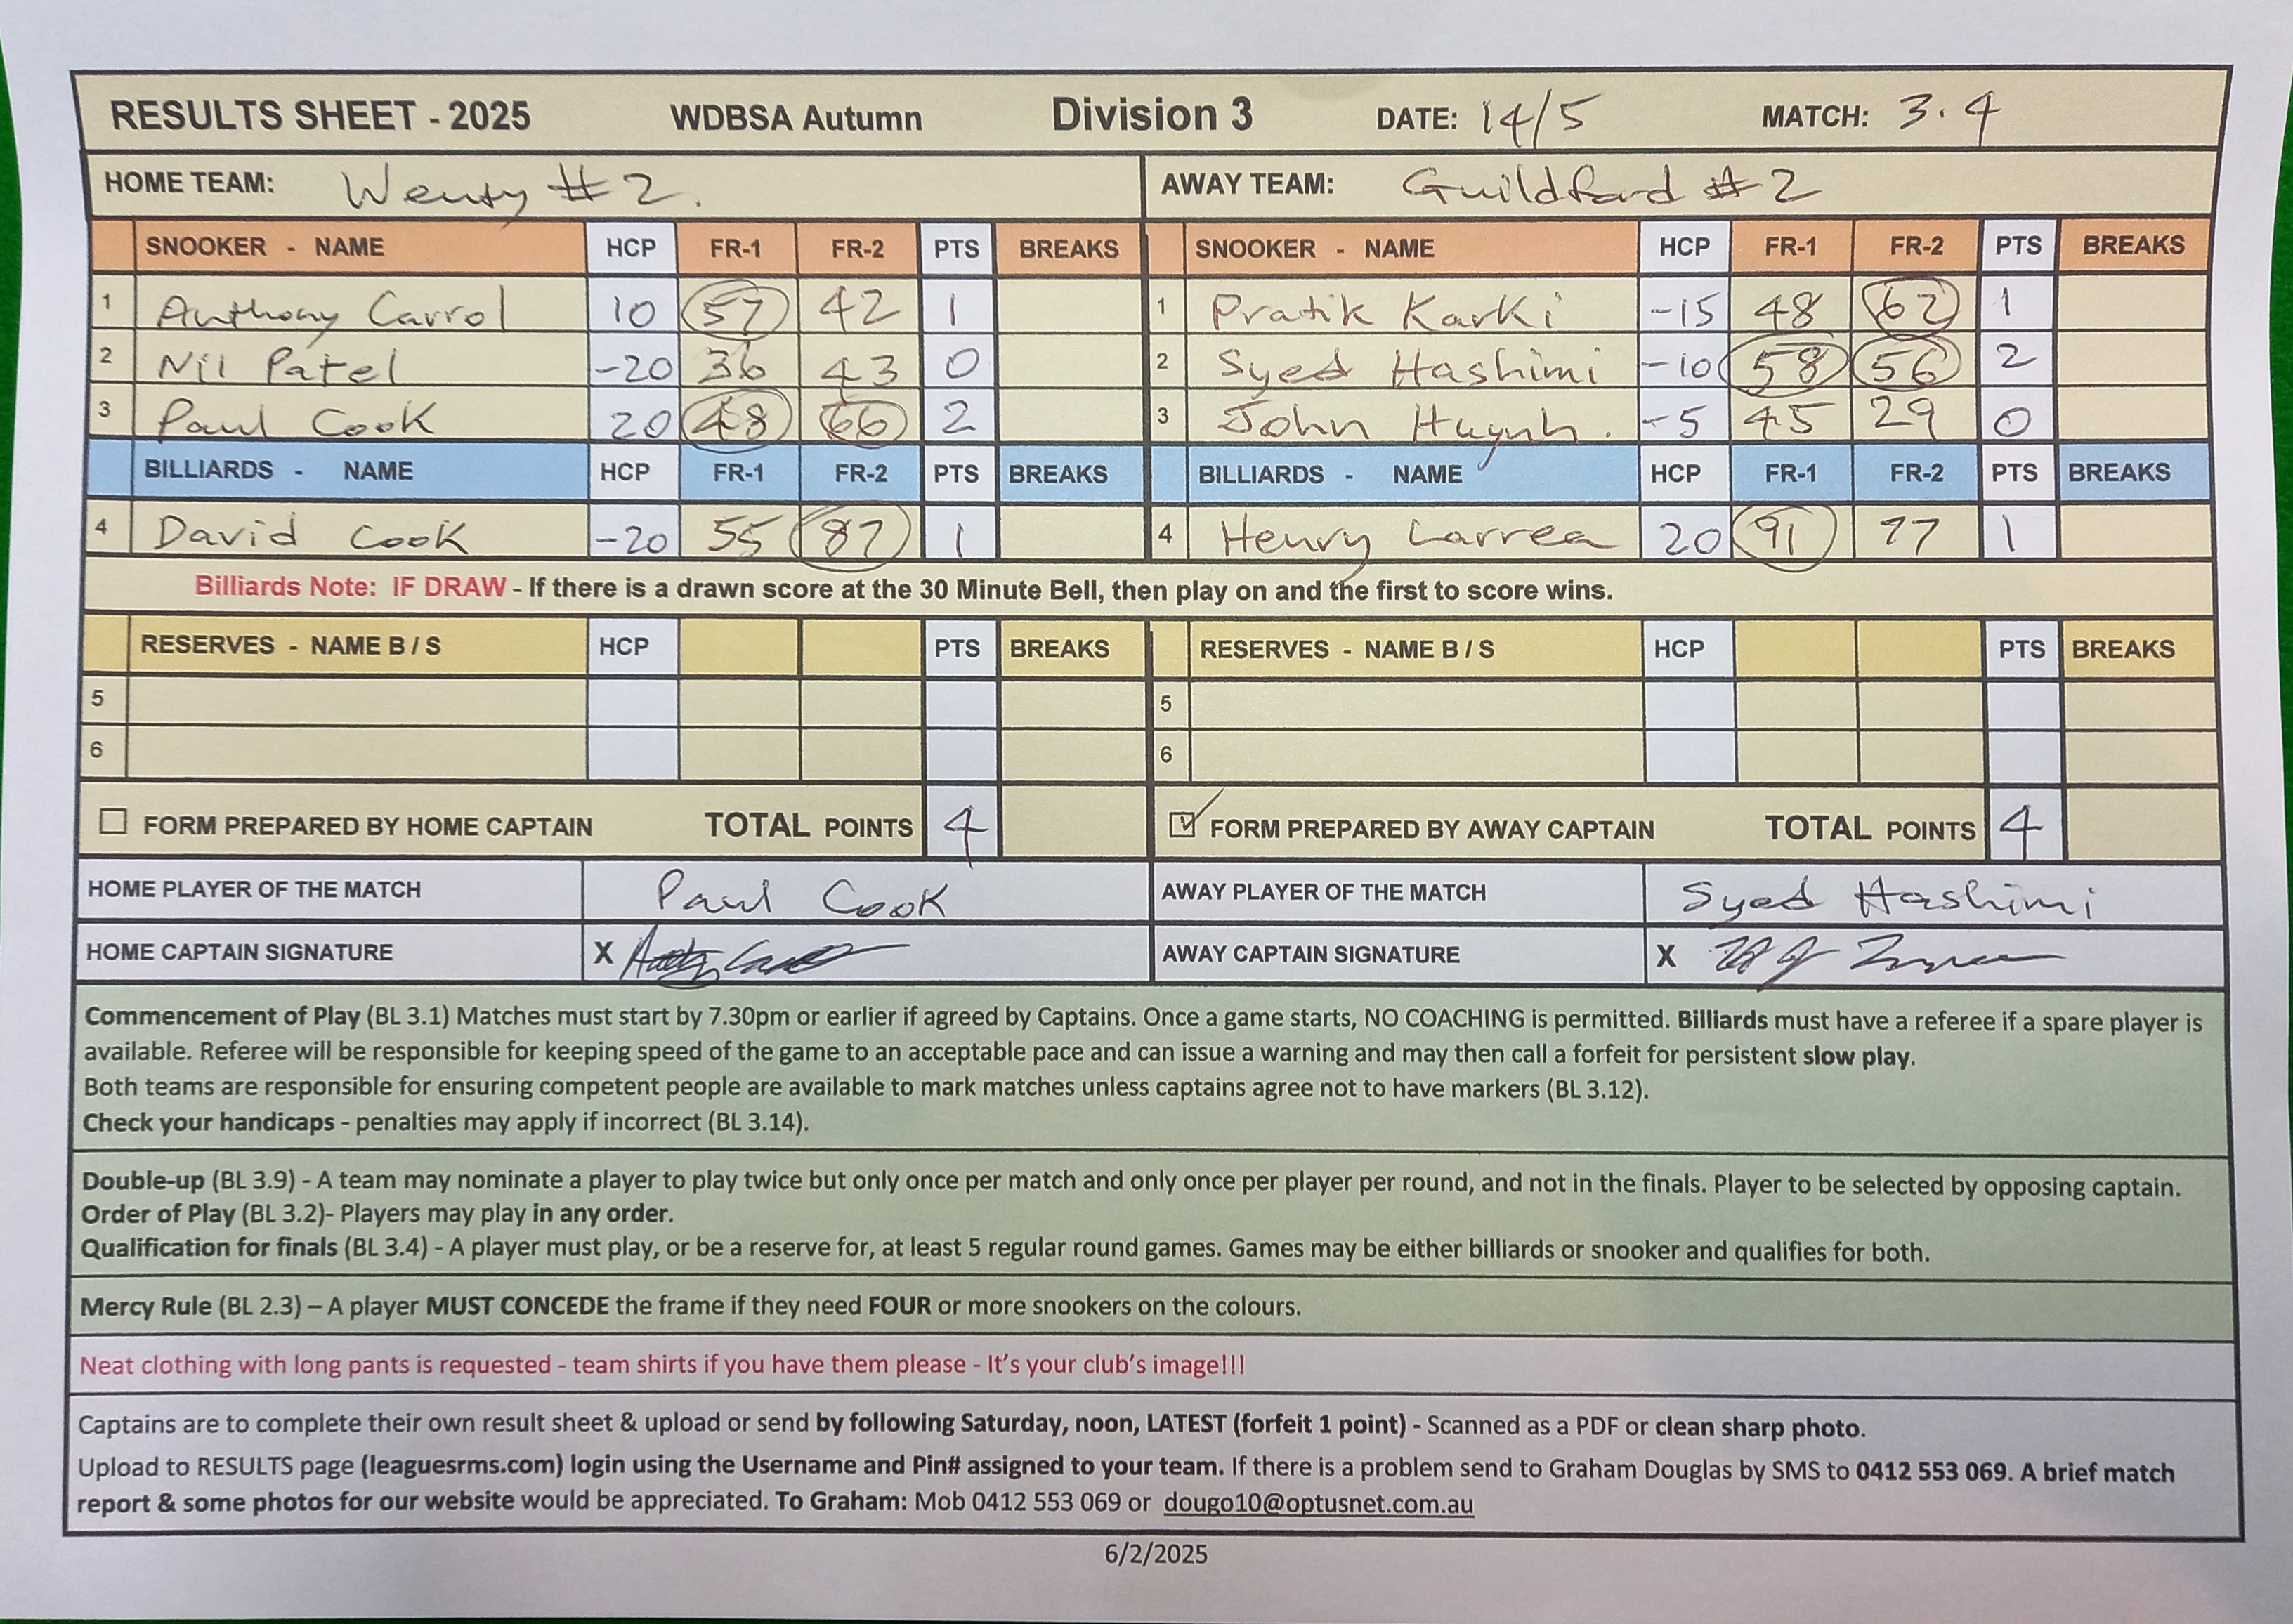 RESULTS SHEET - 2025 WDBSA Autumn Division 3 DATE: 14/5 MATCH: 3.4
HOME TEAM: Wenty #2. AWAY TEAM: Guildford #2
SNOOKER - NAME HCP FR-1 FR-2 PTS BREAKS SNOOKER - NAME HCP FR-1 FR-2 PTS BREAKS
1 Anthony Carrol 10 57 42 1 1 Pratik Karki -15 48 62 1
2 Nil Patel -20 36 43 0 2 Syed Hashimi -10 58 56 2
3 Paul Cook 20 48 66 2 3 John Huynh. -5 45 29 0
BILLIARDS - NAME HCP FR-1 FR-2 PTS BREAKS BILLIARDS - NAME HCP FR-1 FR-2 PTS BREAKS
4 David Cook -20 55 87 1 4 Henry Larrea 20 91 77 1
Billiards Note: IF DRAW - If there is a drawn score at the 30 Minute Bell, then play on and the first to score wins.
RESERVES - NAME B / S HCP PTS BREAKS RESERVES - NAME B / S HCP PTS BREAKS
5 5
6 6
FORM PREPARED BY HOME CAPTAIN TOTAL POINTS 4 FORM PREPARED BY AWAY CAPTAIN TOTAL POINTS 4
HOME PLAYER OF THE MATCH Paul Cook AWAY PLAYER OF THE MATCH Syed Hashimi
HOME CAPTAIN SIGNATURE X AWAY CAPTAIN SIGNATURE X
Commencement of Play (BL 3.1) Matches must start by 7.30pm or earlier if agreed by Captains. Once a game starts, NO COACHING is permitted. Billiards must have a referee if a spare player is
available. Referee will be responsible for keeping speed of the game to an acceptable pace and can issue a warning and may then call a forfeit for persistent slow play.
Both teams are responsible for ensuring competent people are available to mark matches unless captains agree not to have markers (BL 3.12).
Check your handicaps - penalties may apply if incorrect (BL 3.14).
Double-up (BL 3.9) - A team may nominate a player to play twice but only once per match and only once per player per round, and not in the finals. Player to be selected by opposing captain.
Order of Play (BL 3.2)- Players may play in any order.
Qualification for finals (BL 3.4) - A player must play, or be a reserve for, at least 5 regular round games. Games may be either billiards or snooker and qualifies for both.
Mercy Rule (BL 2.3) – A player MUST CONCEDE the frame if they need FOUR or more snookers on the colours.
Neat clothing with long pants is requested - team shirts if you have them please - It's your club's image!!!
Captains are to complete their own result sheet & upload or send by following Saturday, noon, LATEST (forfeit 1 point) - Scanned as a PDF or clean sharp photo.
Upload to RESULTS page (leaguesrms.com) login using the Username and Pin# assigned to your team. If there is a problem send to Graham Douglas by SMS to 0412 553 069. A brief match
report & some photos for our website would be appreciated. To Graham: Mob 0412 553 069 or dougo10@optusnet.com.au
6/2/2025